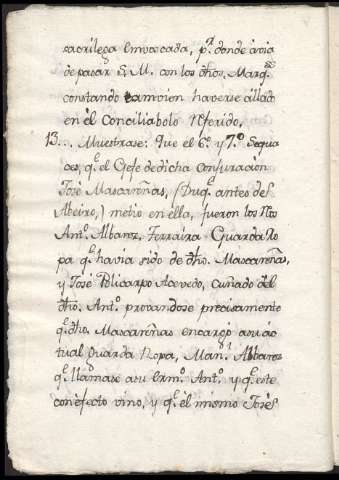 sacrilega emboscada, p.r donde avia
de pasar S. M. con los dhos. Marq.ses
constando tamvien haverse allado
en él Conciliabolo Rferido.
13... Muestrase: Que el 6.º y 7.º Sequa
ces, q.e el Gefe de dicha Conjuración
José Mascareñas, (Duq.e antes de
Abeiro,) metio en ella, fueron los Ros
Ant.º Albarez Ferraira Guarda Ro
pa q.e havia sido de dho. Mascareñas,
y José Policarpo Acevedo, cuñado del
dho. Ant.º provandose precisamente
q.e dho. Mascareñas encargó a su ac
tual Guarda Ropa, Man.l Albarez
q.e llamase a su Erm.º Ant.º y q.e este
con efecto vino, y q.e el mismo José